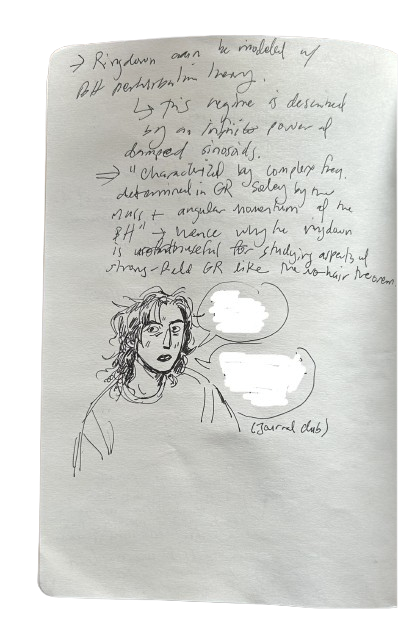 → Ringdown can be modeled w/
BH perturbation theory.
↳ this regime is described
by an infinite power of
damped sinosoids.
⇒ "characterized by complex freq.
determined in GR solely by the
mass + angular momentum of the
BH" → hence why the ringdown
is useful for studying aspects of
strong-field GR like the no-hair theorem
(Journal club)